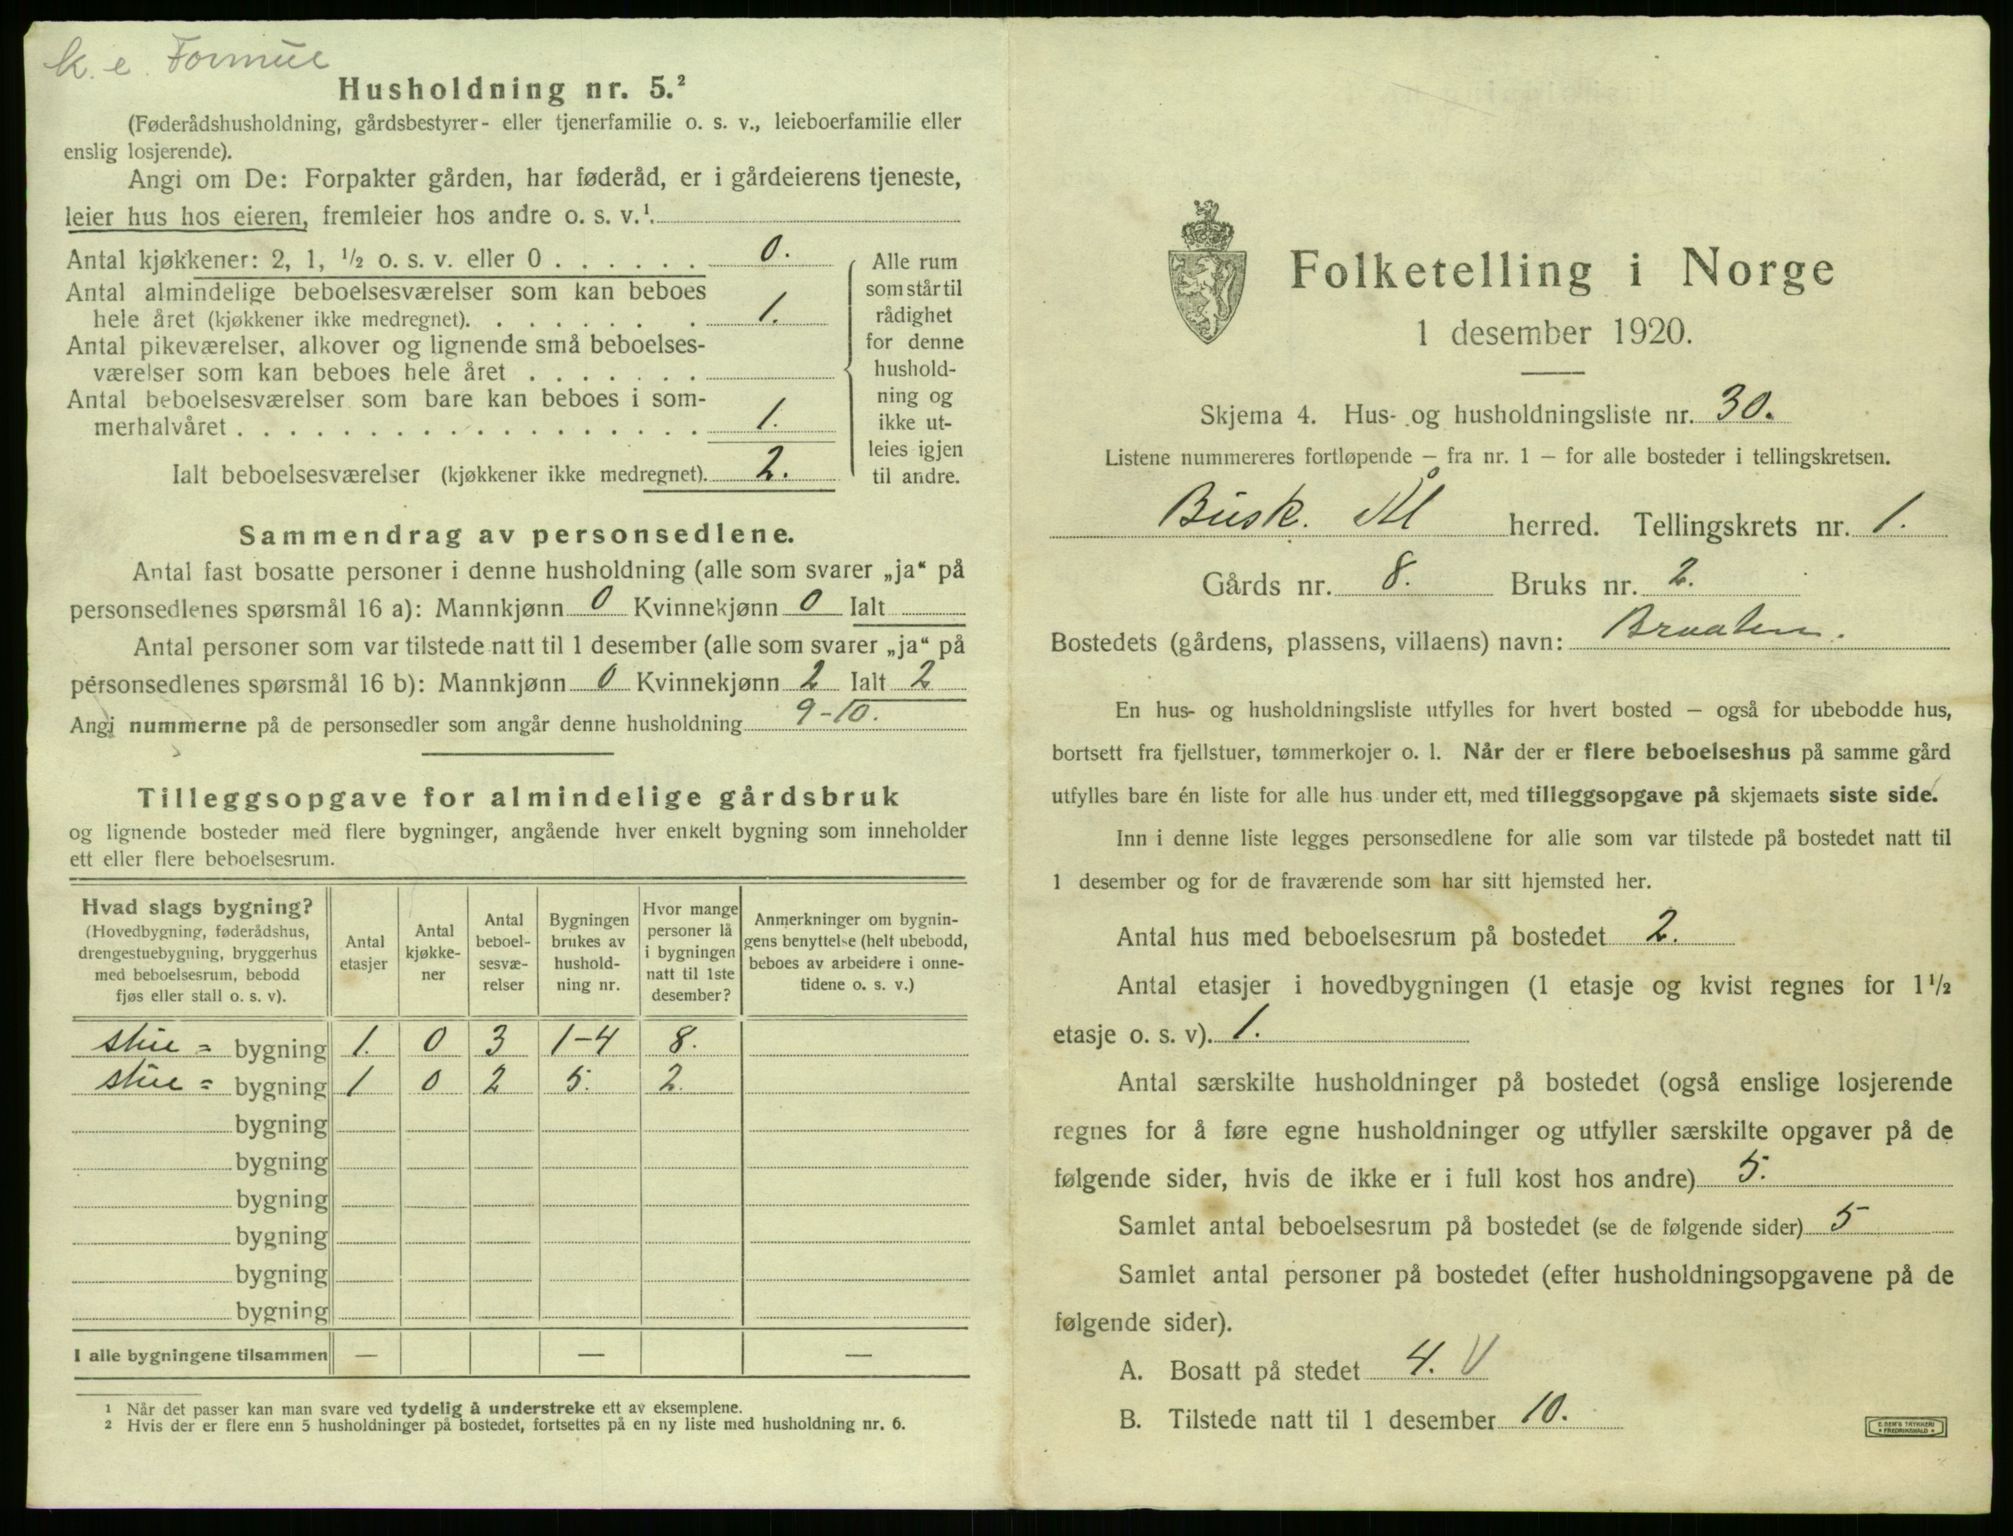 k. e. Formue
Husholdning nr. 5.²
(Føderådshusholdning, gårdsbestyrer- eller tjenerfamilie o. s. v., leieboerfamilie eller
enslig losjerende).
Angi om De: Forpakter gården, har føderåd, er i gårdeierens tjeneste,
leier hus hos eieren, fremleier hos andre o. s. v.¹.
Antal kjøkkener: 2, 1, ½ o. s. v. eller 0 . . . . . . 0.
Antal almindelige beboelsesværelser som kan beboes
hele året (kjøkkener ikke medregnet). . . . . . . . 1.
Antal pikeværelser, alkover og lignende små beboelses-
værelser som kan beboes hele året . . . . . . .
Antal beboelsesværelser som bare kan beboes i som-
merhalvåret . . . . . . . . . . . . . . . . . 1.
Ialt beboelsesværelser (kjøkkener ikke medregnet). 2.
Alle rum
som står til
rådighet
for denne
hushold-
ning og
ikke ut-
leies igjen
til andre.
Sammendrag av personsedlene.
Antal fast bosatte personer i denne husholdning (alle som svarer „ja“ på
personsedlenes spørsmål 16 a): Mannkjønn 0 Kvinnekjønn 0 Ialt
Antal personer som var tilstede natt til 1 desember (alle som svarer „ja“ på
personsedlenes spørsmål 16 b): Mannkjønn 0 Kvinnekjønn 2 Ialt 2
Angi nummerne på de personsedler som angår denne husholdning 9-10.
Tilleggsopgave for almindelige gårdsbruk
og lignende bosteder med flere bygninger, angående hver enkelt bygning som inneholder
ett eller flere beboelsesrum.
Hvad slags bygning?
(Hovedbygning, føderådshus,
drengestuebygning, bryggerhus
med beboelsesrum, bebodd
fjøs eller stall o. s. v).
Antal
etasjer
Antal
kjøkke-
ner
Antal
beboel-
sesvæ-
relser
Bygningen
brukes av
hushold-
ning nr.
Hvor mange
personer lå
i bygningen
natt til 1ste
desember?
Anmerkninger om bygnin-
gens benyttelse (helt ubebodd,
beboes av arbeidere i onne-
tidene o. s. v.)
stue = bygning 1. 0 3 1-4 8.
stue = bygning 1 0 2 5. 2.
bygning
bygning
bygning
bygning
bygning
bygning
I alle bygningene tilsammen — — —
¹ Når det passer kan man svare ved tydelig å understreke ett av eksemplene.
² Hvis der er flere enn 5 husholdninger på bostedet, fortsettes på en ny liste med husholdning nr. 6.
Folketelling i Norge
1 desember 1920.
Skjema 4. Hus- og husholdningsliste nr. 30.
Listene nummereres fortløpende – fra nr. 1 – for alle bosteder i tellingskretsen.
Busk. Ål herred. Tellingskrets nr. 1.
Gårds nr. 8. Bruks nr. 2.
Bostedets (gårdens, plassens, villaens) navn: Braaten.
En hus- og husholdningsliste utfylles for hvert bosted – også for ubebodde hus,
bortsett fra fjellstuer, tømmerkojer o. l. Når der er flere beboelseshus på samme gård
utfylles bare én liste for alle hus under ett, med tilleggsopgave på skjemaets siste side.
Inn i denne liste legges personsedlene for alle som var tilstede på bostedet natt til
1 desember og for de fraværende som har sitt hjemsted her.
Antal hus med beboelsesrum på bostedet 2.
Antal etasjer i hovedbygningen (1 etasje og kvist regnes for 1½
etasje o. s. v). 1.
Antal særskilte husholdninger på bostedet (også enslige losjerende
regnes for å føre egne husholdninger og utfyller særskilte opgaver på de
følgende sider, hvis de ikke er i full kost hos andre) 5.
Samlet antal beboelsesrum på bostedet (se de følgende sider) 5
Samlet antal personer på bostedet (efter husholdningsopgavene på de
følgende sider).
A. Bosatt på stedet 4. V
B. Tilstede natt til 1 desember 10.
E. SEM'S TRYKKERI
FREDRIKSHALD